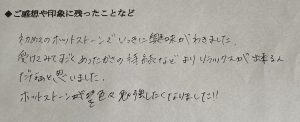 ◆ご感想や印象に残ったことなど
初めてのホットストーンでいっきに興味がわきました。
受けてみてずっとあたたかさの持続などよりリラックスが出来るん
だなぁと思いました。
ホットストーン 色々勉強したくなりました!!